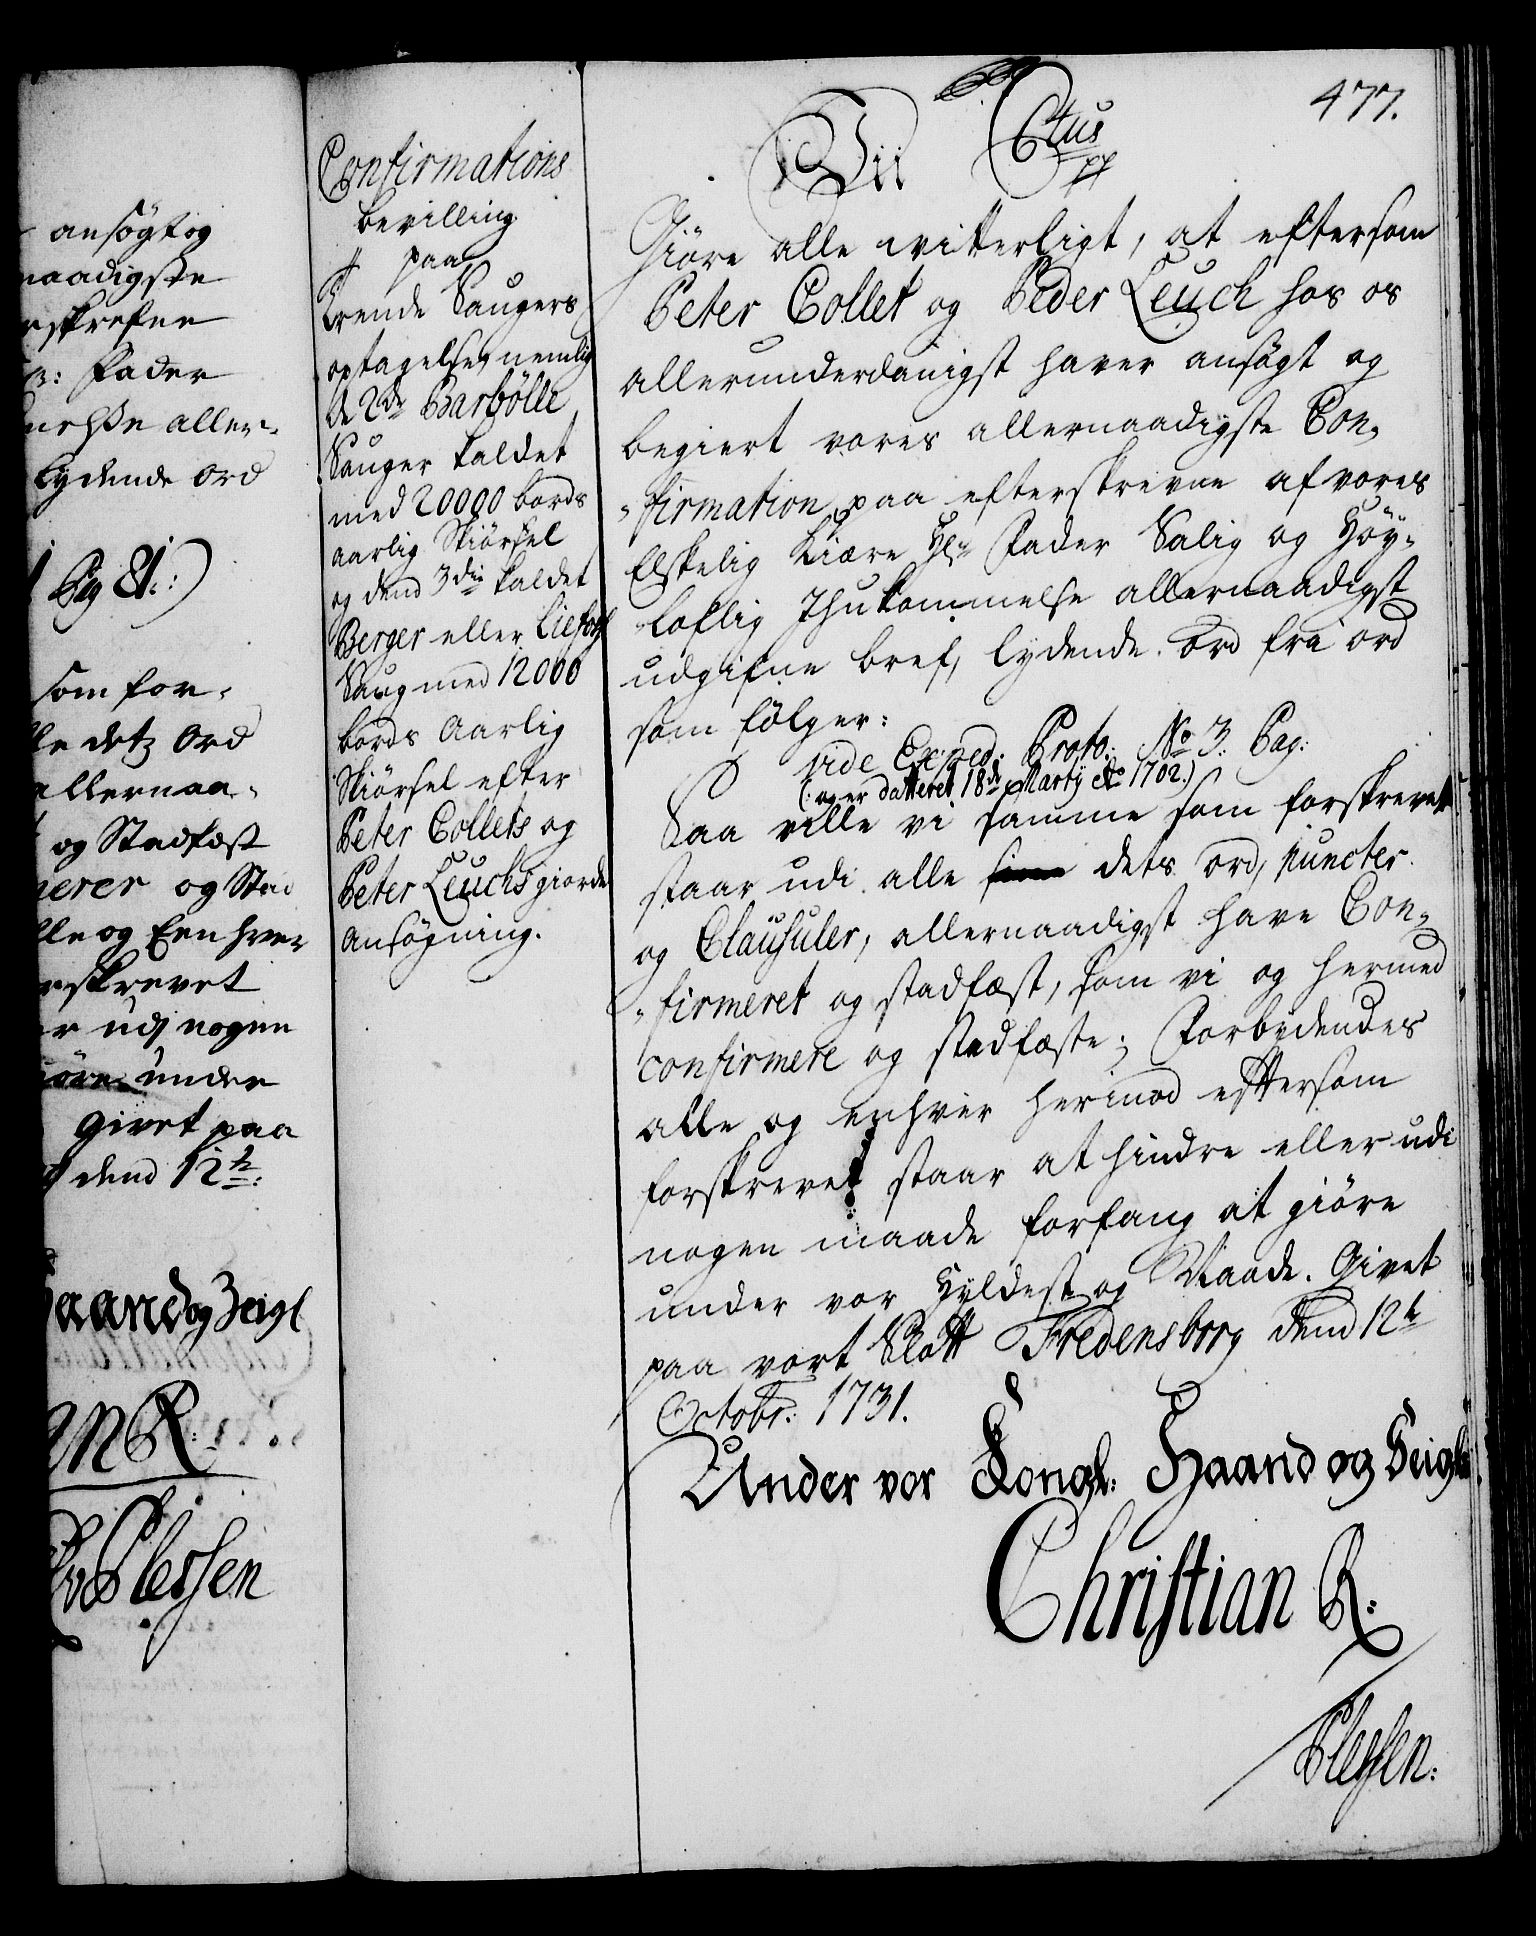 ansögt og
naadigste
rskrefne
Fader
aller-
lydende ord
Pag 81:)
som for-
le detz ord
allernaa-
og Stadfæst
nerer og Stad
lle og Een hver
rskrevet
er udj nogen
iöre under
Givet paa
dend 12te:
Haand og Zeigl
an R.
v Plessen
477.
Confirmations
bevilling
paa
Trende Saugers
optagelse, nemlig
de 2de Barbölle
Sauger kaldet
med 20000 bords
aarlig Skiörsel
og dend 3die kaldet
Berger eller Liefoss
Saug med 12000
bords Aarlig
Skiörsel efter
Peter Collets og
Peter Leuchs giorde
ansögning.
Vii Ctus
Giöre alle witterligt, at eftersom
Peter Collet og Peder Leuch hos os
allerunderdanigst haver ansögt og
begiert vores allernaadigste Con-
firmation paa efterskrevne af vores
Elskelig kiære Hr Fader Salig og Höy-
loflig Ihukommelse allernaadigst
udgifne bref, lydende ord fra ord
som fölger:
vide Exped: Proto: No 3. Pag:
(: og er datteret 18de Martij Ao 1702.)
Saa ville vi samme som forskrevet
staar udi alle dets ord, puncter
og Clausuler, allernaadigst have Con-
firmeret og stadfæst, som vi og hermed
confirmere og stadfæste; Forbydendes
alle og enhver herimod eftersom
forskrevet staar at hindre eller udi
nogen maade forfang at giöre
under vor Hyldest og Naade. Givet
paa vort Slott Fredensborg dend 12te
Octobr: 1731.
Under vor Kongl: Haand og Seigl
Christian R:
Plessen: